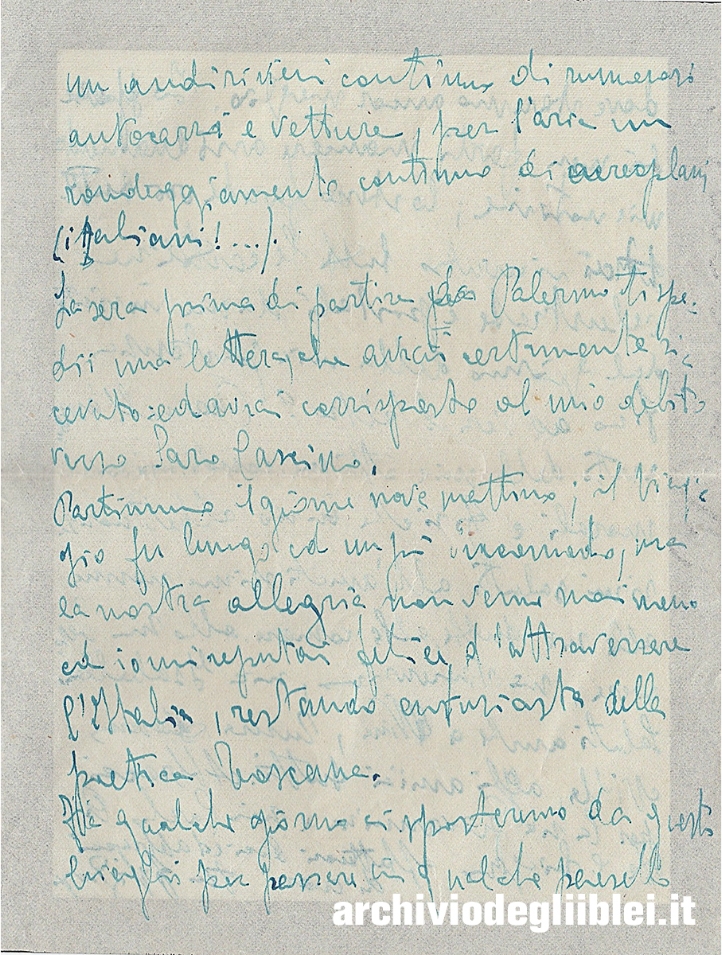 un andirivieni continuo di numerosi
autocarri e vetture, per l'aria un
rondeggiamento continuo di aereoplani
(italiani!...).
La sera prima di partire da Palermo ti spe-
dii una lettera, che avrai certamente ri-
cevuto ed avrai corrisposto al mio debito
verso
Partimmo il giorno nove mattino; il viag-
gio fu lungo ed un pò incomodo, ma
la nostra allegria non venne mai meno
ed io mi reputai felice d'attraversare
l'Italia, restando entusiasta della
poetica Toscana.
qualche giorno ci sposteremo da questo
per passare in qualche paesello
archiviodegliiblei.it